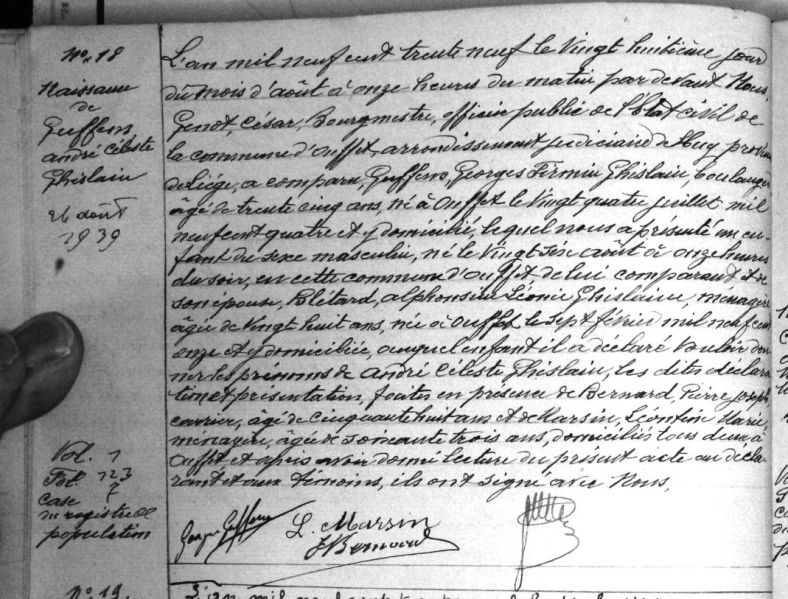 No. 18
Naissance
de
Guffens,
André Céleste
Ghislain
26 août
1939
L'an mil neuf cent trente neuf le vingt huitième jour
du mois d'août à onze heures du matin par devant Nous
Genot, César, Bourgmestre, officier public de l'Etat civil de
la commune d'Ouffet, arrondissement judiciaire de Huy province
de Liège, a comparu, Guffens, Georges Firmin Ghislain, boulanger
âgé de trente cinq ans, né à Ouffet le vingt quatre juillet mil
neuf cent quatre et y domicilié, lequel nous a présenté un en-
fant du sexe masculin, né le vingt six août à onze heures
du soir, en cette commune d'Ouffet de lui comparant et de
son épouse, Blétard, Alphonsine Léonie Ghislaine, ménagère
âgée de vingt huit ans, née à Ouffet le sept février mil neuf cent
onze et y domiciliée, auquel enfant il a déclaré vouloir don-
ner les prénoms de André Céleste Ghislain, les dites déclara-
tion et présentation, faites en présence de Bernard, Pierre Joseph
ouvrier, âgé de cinquante huit ans et de Marsin, Léontine Marie,
ménagère, âgée de soixante trois ans, domiciliés tous deux à
Ouffet et après avoir donné lecture du présent acte au décla-
rant et aux témoins, ils ont signé avec Nous.
Vol. 1
Fol. 123
case
du registre de
population
Georges Guffens
L. Marsin
Bernard
No. 19.
L'an mil neuf cent